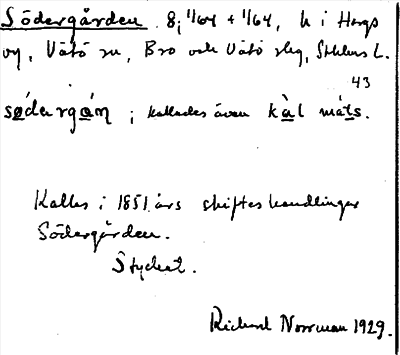 Södergården 8; 1/64 + 1/64, h i Hargs
by, Vätö sn, Bro och Vätö slg, Sthlms L.
43
sø̀dergán ; kallades även kàl máts.
Kallas i 1851 års skifteshandlingar
Södergården.
Styckat.
Richard Norrman 1929.